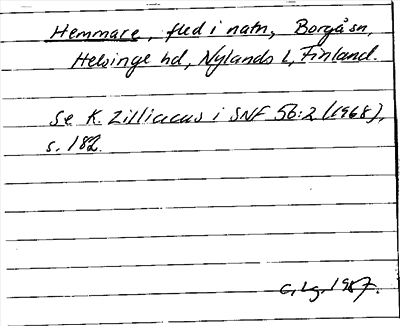 Hemmare, fled i natn, Borgå sn,
Helsinge hd, Nylands l, Finland.
Se K. Zilliacus i SNF 56:2 (1968),
s. 182.
C. Lg. 1987.